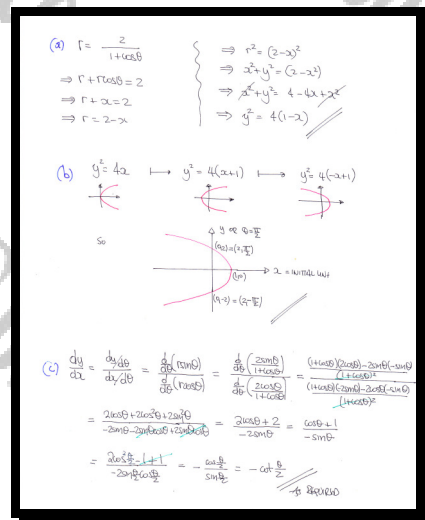 (a) r = 2/(1+cosθ)
⇒ r + rcosθ = 2
⇒ r + x = 2
⇒ r = 2-x
⇒ r² = (2-x)²
⇒ x²+y² = (2-x²)
⇒ x²+y² = 4-4x+x²
⇒ y² = 4(1-x)
(b) y² = 4x ⟼ y² = 4(x+1) ⟼ y² = 4(-x+1)
So
y or θ=π/2
(0,2)=(2,π/2)
(1,0)
x = INITIAL LINE
(0,-2)=(2,-π/2)
(c) dy/dx = (dy/dθ)/(dx/dθ) = (d/dθ(rsinθ))/(d/dθ(rcosθ)) = (d/dθ(2sinθ/(1+cosθ)))/(d/dθ(2cosθ/(1+cosθ))) = (((1+cosθ)(2cosθ)-2sinθ(-sinθ))/(1+cosθ)²)/(((1+cosθ)(-2sinθ)-2cosθ(-sinθ))/(1+cosθ)²)
= (2cosθ+2cos²θ+2sin²θ)/(-2sinθ-2sinθcosθ+2sinθcosθ) = (2cosθ+2)/(-2sinθ) = (cosθ+1)/(-sinθ)
= (2cos²θ/2-1+1)/(-2sinθ/2cosθ/2) = -(cosθ/2)/(sinθ/2) = -cotθ/2
As REQUIRED